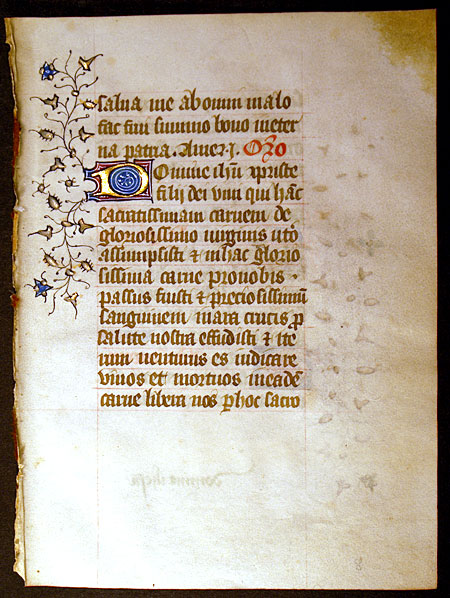 salua me ab omni malo
fac fini summo bono in eter
na patria. Amen. Oro
Domine ihu xpriste
filii dei viui qui hāc
sacratissimam carnem de
gloriosissimo uirginis utō
assumpsisti & in hac glorio
sissima carne pronobis
passus fuisti & preciosissimū
sanguinem in ara crucis p
salute nostra effudisti & ite
rum uenturus es iudicare
viuos et mortuos in eadē
carne libera nos p hoc sacro
8